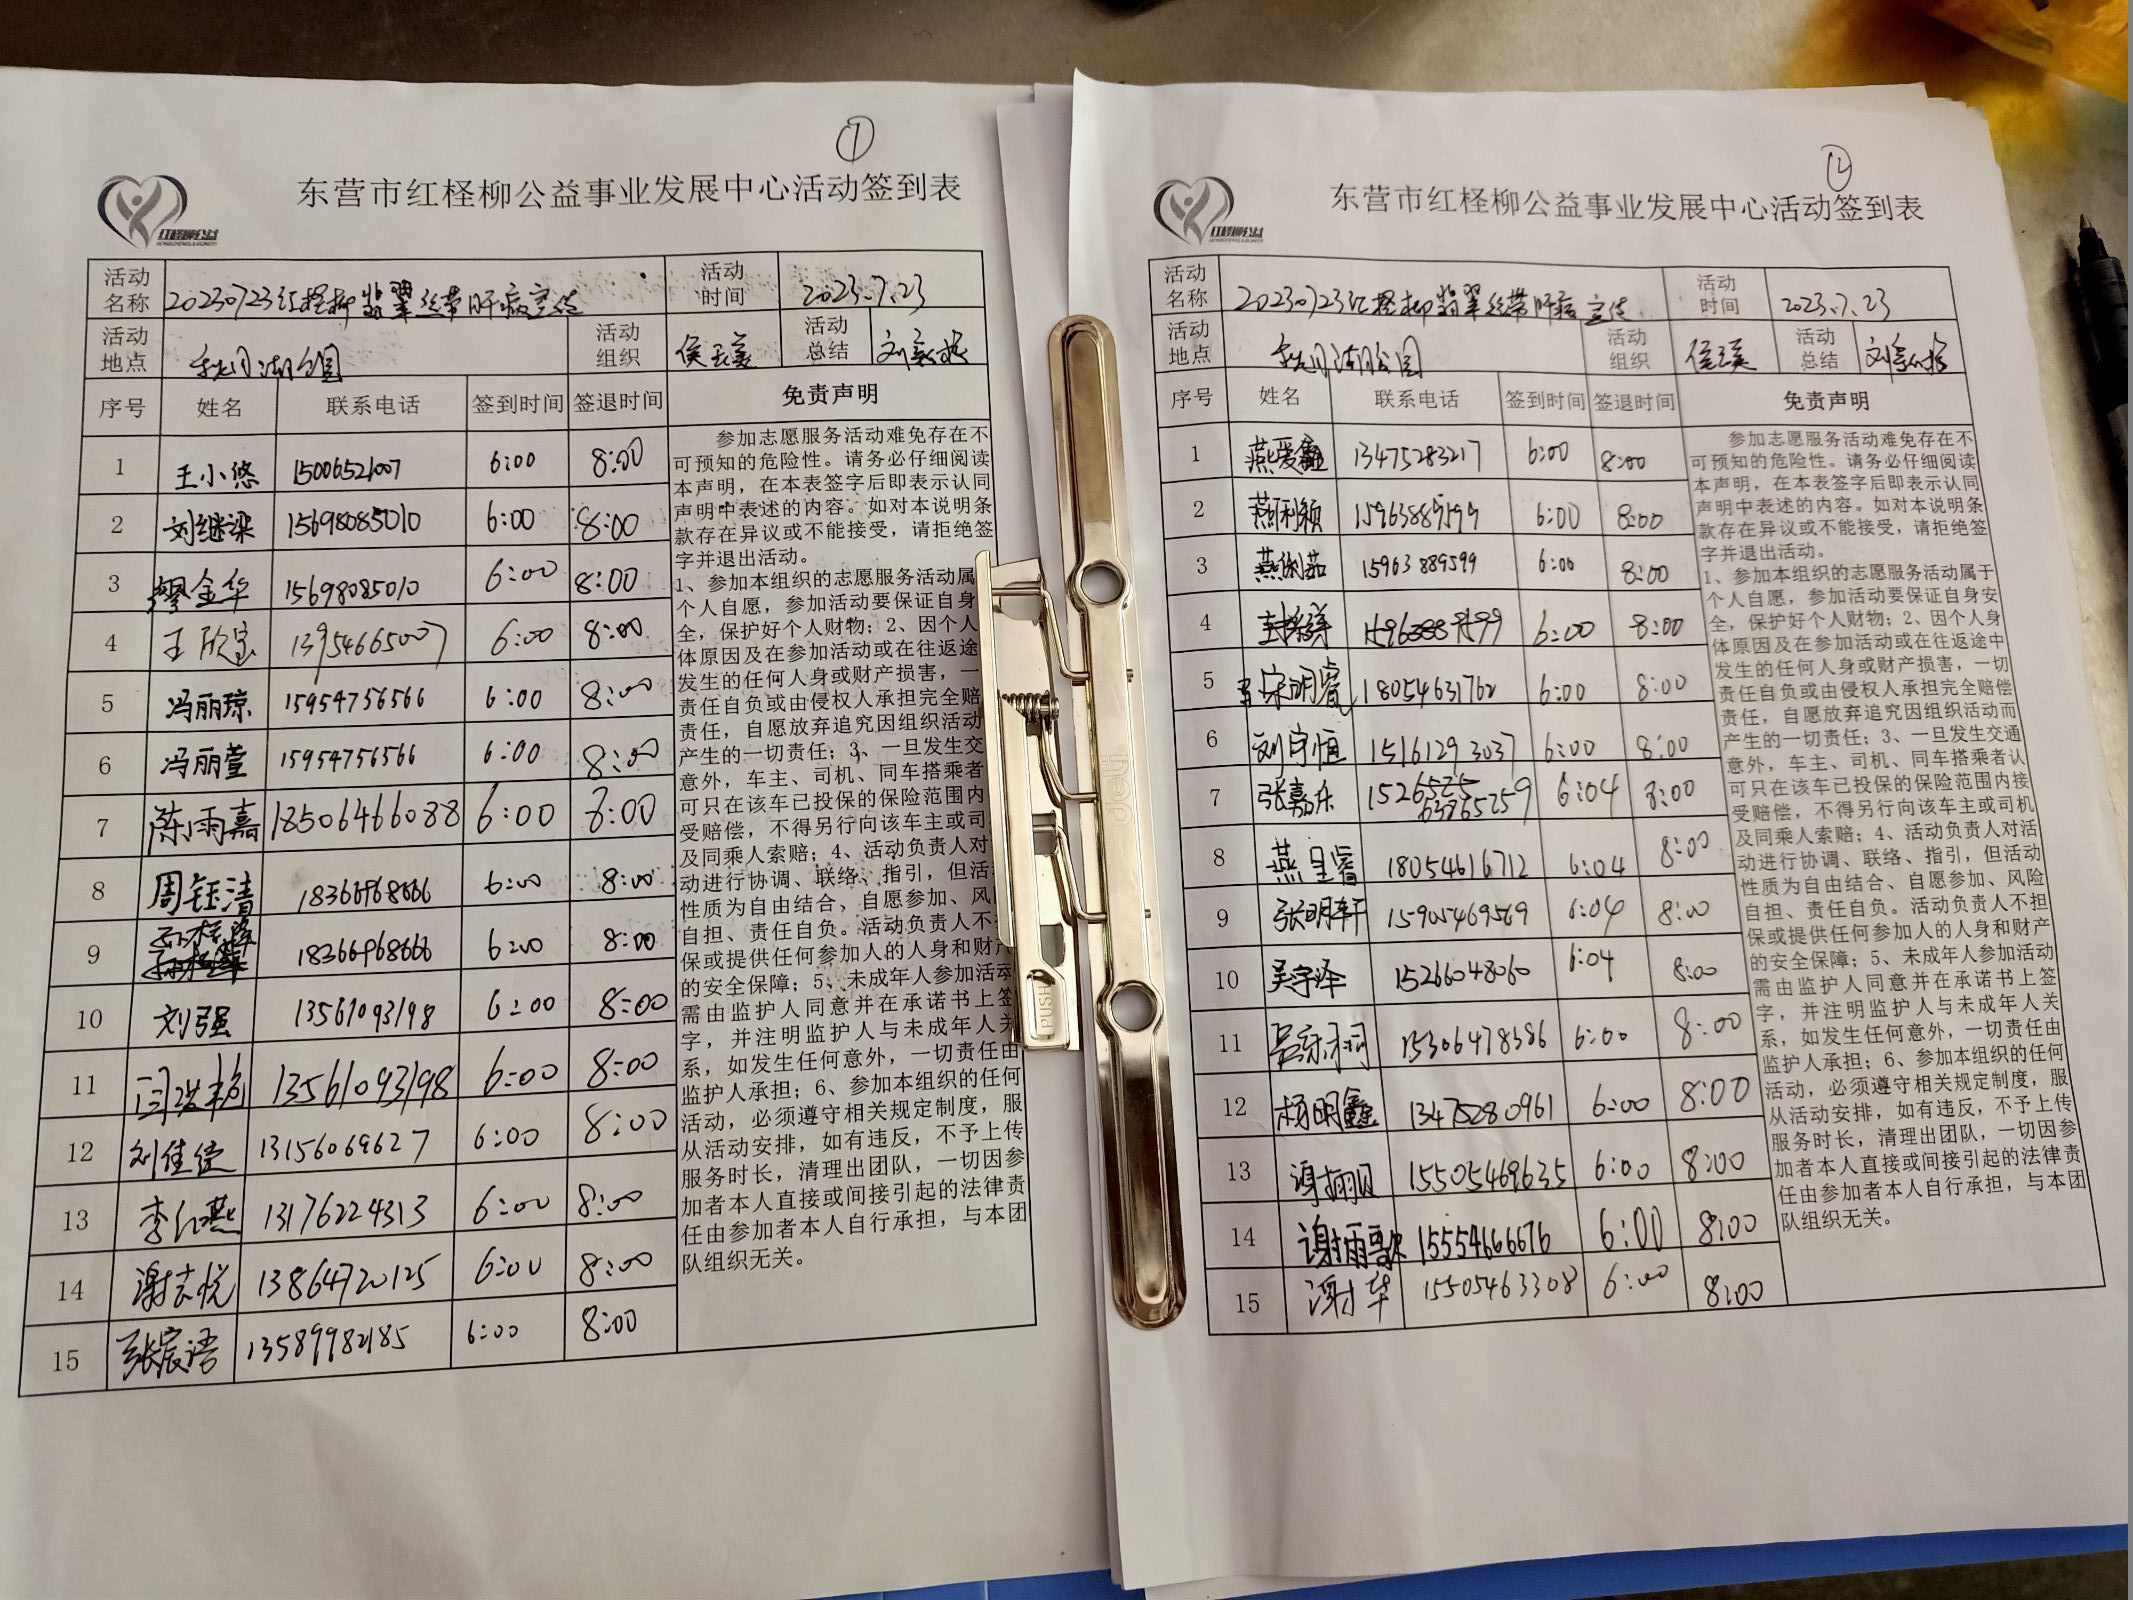 ①
东营市红柽柳公益事业发展中心活动签到表
红柽柳公益
活动名称 20230723红柽柳翡翠丝带肝病宣传 活动时间 2023.7.23
活动地点 活动组织 活动总结
序号 姓名 联系电话 签到时间 签退时间 免责声明
1 王小悠 15006521007 6:00 8:00
2 刘继梁 15698085010 6:00 8:00
3 缪金华 15698085010 6:00 8:00
4 王欣宝 13954665007 6:00 8:00
5 冯丽琼 15954756566 6:00 8:00
6 冯丽萱 15954756566 6:00 8:00
7 陈雨嘉 18506466088 6:00 8:00
8 周钰清 18366968666 6:00 8:00
9 18366968666 6:00 8:00
10 刘强 13561093198 6:00 8:00
11 13561093198 6:00 8:00
12 13156069627 6:00 8:00
13 李红燕 13176224313 6:00 8:00
14 谢志悦 13864720125 6:00 8:00
15 张宸语 13589982185 6:00 8:00
参加志愿服务活动难免存在不
可预知的危险性。请务必仔细阅读
本声明，在本表签字后即表示认同
声明中表述的内容。如对本说明条
款存在异议或不能接受，请拒绝签
字并退出活动。
1、参加本组织的志愿服务活动属
个人自愿，参加活动要保证自身
全，保护好个人财物；2、因个人
体原因及在参加活动或在往返途
发生的任何人身或财产损害，一
责任自负或由侵权人承担完全赔
责任，自愿放弃追究因组织活动
产生的一切责任；3、一旦发生交
意外，车主、司机、同车搭乘者
可只在该车已投保的保险范围内
受赔偿，不得另行向该车主或司
及同乘人索赔；4、活动负责人对
动进行协调、联络、指引，但活
性质为自由结合、自愿参加、风
自担、责任自负。活动负责人不
保或提供任何参加人的人身和财产
的安全保障；5、未成年人参加活动
需由监护人同意并在承诺书上签
字，并注明监护人与未成年人关
系，如发生任何意外，一切责任由
监护人承担；6、参加本组织的任何
活动，必须遵守相关规定制度，服
从活动安排，如有违反，不予上传
服务时长，清理出团队，一切因参
加者本人直接或间接引起的法律责
任由参加者本人自行承担，与本团
队组织无关。
deli
PUSH
②
东营市红柽柳公益事业发展中心活动签到表
红柽柳公益
活动名称 20230723红柽柳翡翠丝带肝病宣传 活动时间 2023.7.23
活动地点 活动组织 活动总结
序号 姓名 联系电话 签到时间 签退时间 免责声明
1 燕爱鑫 13475283217 6:00 8:00
2 燕利颖 15963889599 6:00 8:00
3 15963889599 6:00 8:00
4 6:00 8:00
5 宋明睿 18054631762 6:00 8:00
6 刘宇恒 15161293037 6:00 8:00
7 张嘉乐 6:04 8:00
8 燕呈睿 18054616712 6:04 8:00
9 张明轩 15905469569 6:04 8:00
10 吴宇泽 15266048060 6:04 8:00
11 15306478386 6:00 8:00
12 杨明鑫 13475280961 6:00 8:00
13 谢翊贝 15505469635 6:00 8:00
14 谢雨歌 15554666676 6:00 8:00
15 谢华 15505463308 6:00 8:00
参加志愿服务活动难免存在不
可预知的危险性。请务必仔细阅读
本声明，在本表签字后即表示认同
声明中表述的内容。如对本说明条
款存在异议或不能接受，请拒绝签
字并退出活动。
1、参加本组织的志愿服务活动属于
个人自愿，参加活动要保证自身安
全，保护好个人财物；2、因个人身
体原因及在参加活动或在往返途中
发生的任何人身或财产损害，一切
责任自负或由侵权人承担完全赔偿
责任，自愿放弃追究因组织活动而
产生的一切责任；3、一旦发生交通
意外，车主、司机、同车搭乘者认
可只在该车已投保的保险范围内接
受赔偿，不得另行向该车主或司机
及同乘人索赔；4、活动负责人对活
动进行协调、联络、指引，但活动
性质为自由结合、自愿参加、风险
自担、责任自负。活动负责人不担
保或提供任何参加人的人身和财产
的安全保障；5、未成年人参加活动
需由监护人同意并在承诺书上签
字，并注明监护人与未成年人关
系，如发生任何意外，一切责任由
监护人承担；6、参加本组织的任何
活动，必须遵守相关规定制度，服
从活动安排，如有违反，不予上传
服务时长，清理出团队，一切因参
加者本人直接或间接引起的法律责
任由参加者本人自行承担，与本团
队组织无关。